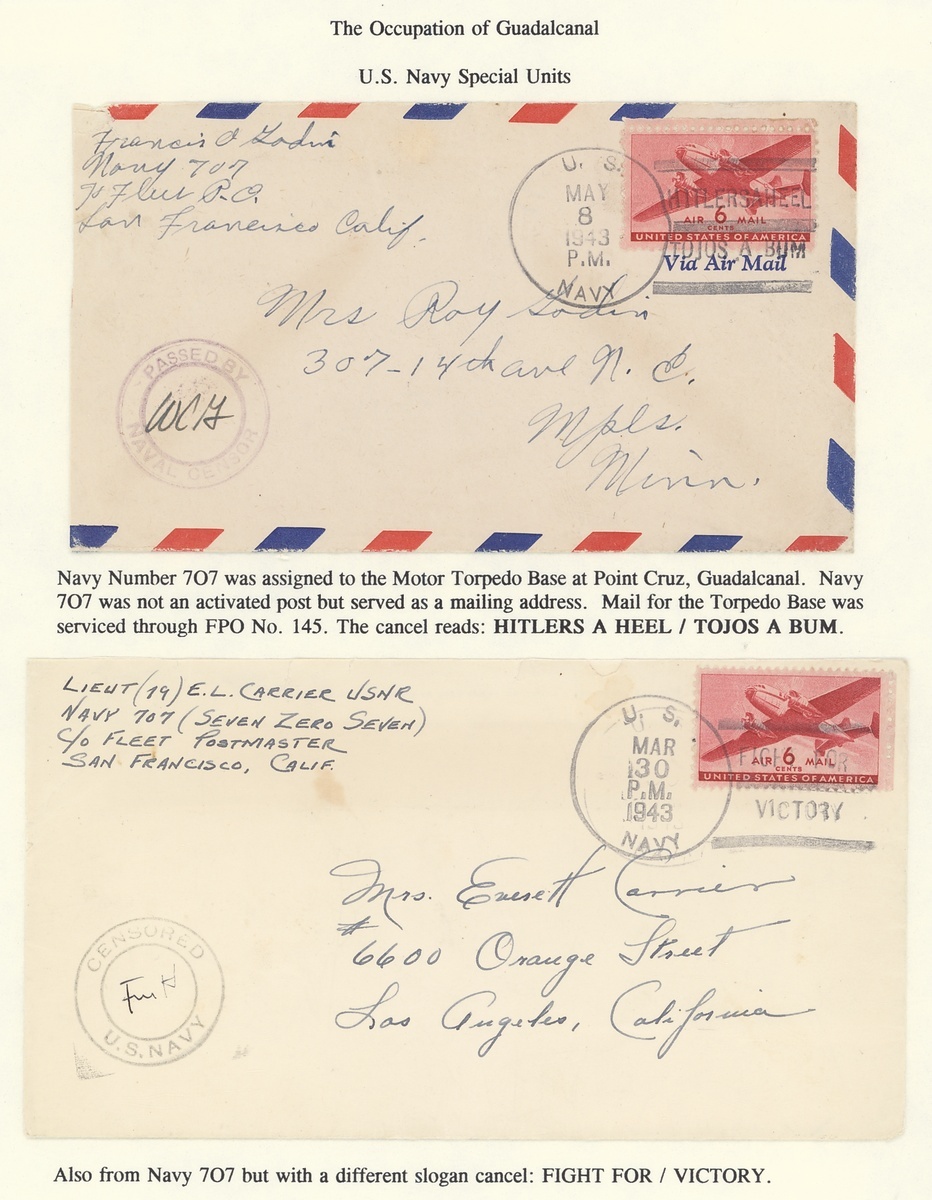 The Occupation of Guadalcanal
U.S. Navy Special Units
Francis O Godin
Navy 707
℅ Fleet P.O.
San Francisco Calif.
U. S.
MAY
8
1943
P.M.
NAVY
HITLERS A HEEL
TOJOS A BUM
AIR 6 MAIL
CENTS
UNITED STATES OF AMERICA
Via Air Mail
Mrs Roy Godin
307-14th ave N. E.
Mpls.
Minn.
PASSED BY
WCH
NAVAL CENSOR
Navy Number 7O7 was assigned to the Motor Torpedo Base at Point Cruz, Guadalcanal. Navy
7O7 was not an activated post but served as a mailing address. Mail for the Torpedo Base was
serviced through FPO No. 145. The cancel reads: HITLERS A HEEL / TOJOS A BUM.
LIEUT (JG) E.L. CARRIER USNR
NAVY 707 (SEVEN ZERO SEVEN)
C/O FLEET POSTMASTER
SAN FRANCISCO, CALIF.
U. S.
MAR
30
P.M.
1943
NAVY
FIGHT FOR
VICTORY
AIR 6 MAIL
CENTS
UNITED STATES OF AMERICA
Mrs. Everett Carrier
#
6600 Orange Street
Los Angeles, California
CENSORED
U.S. NAVY
Also from Navy 7O7 but with a different slogan cancel: FIGHT FOR / VICTORY.